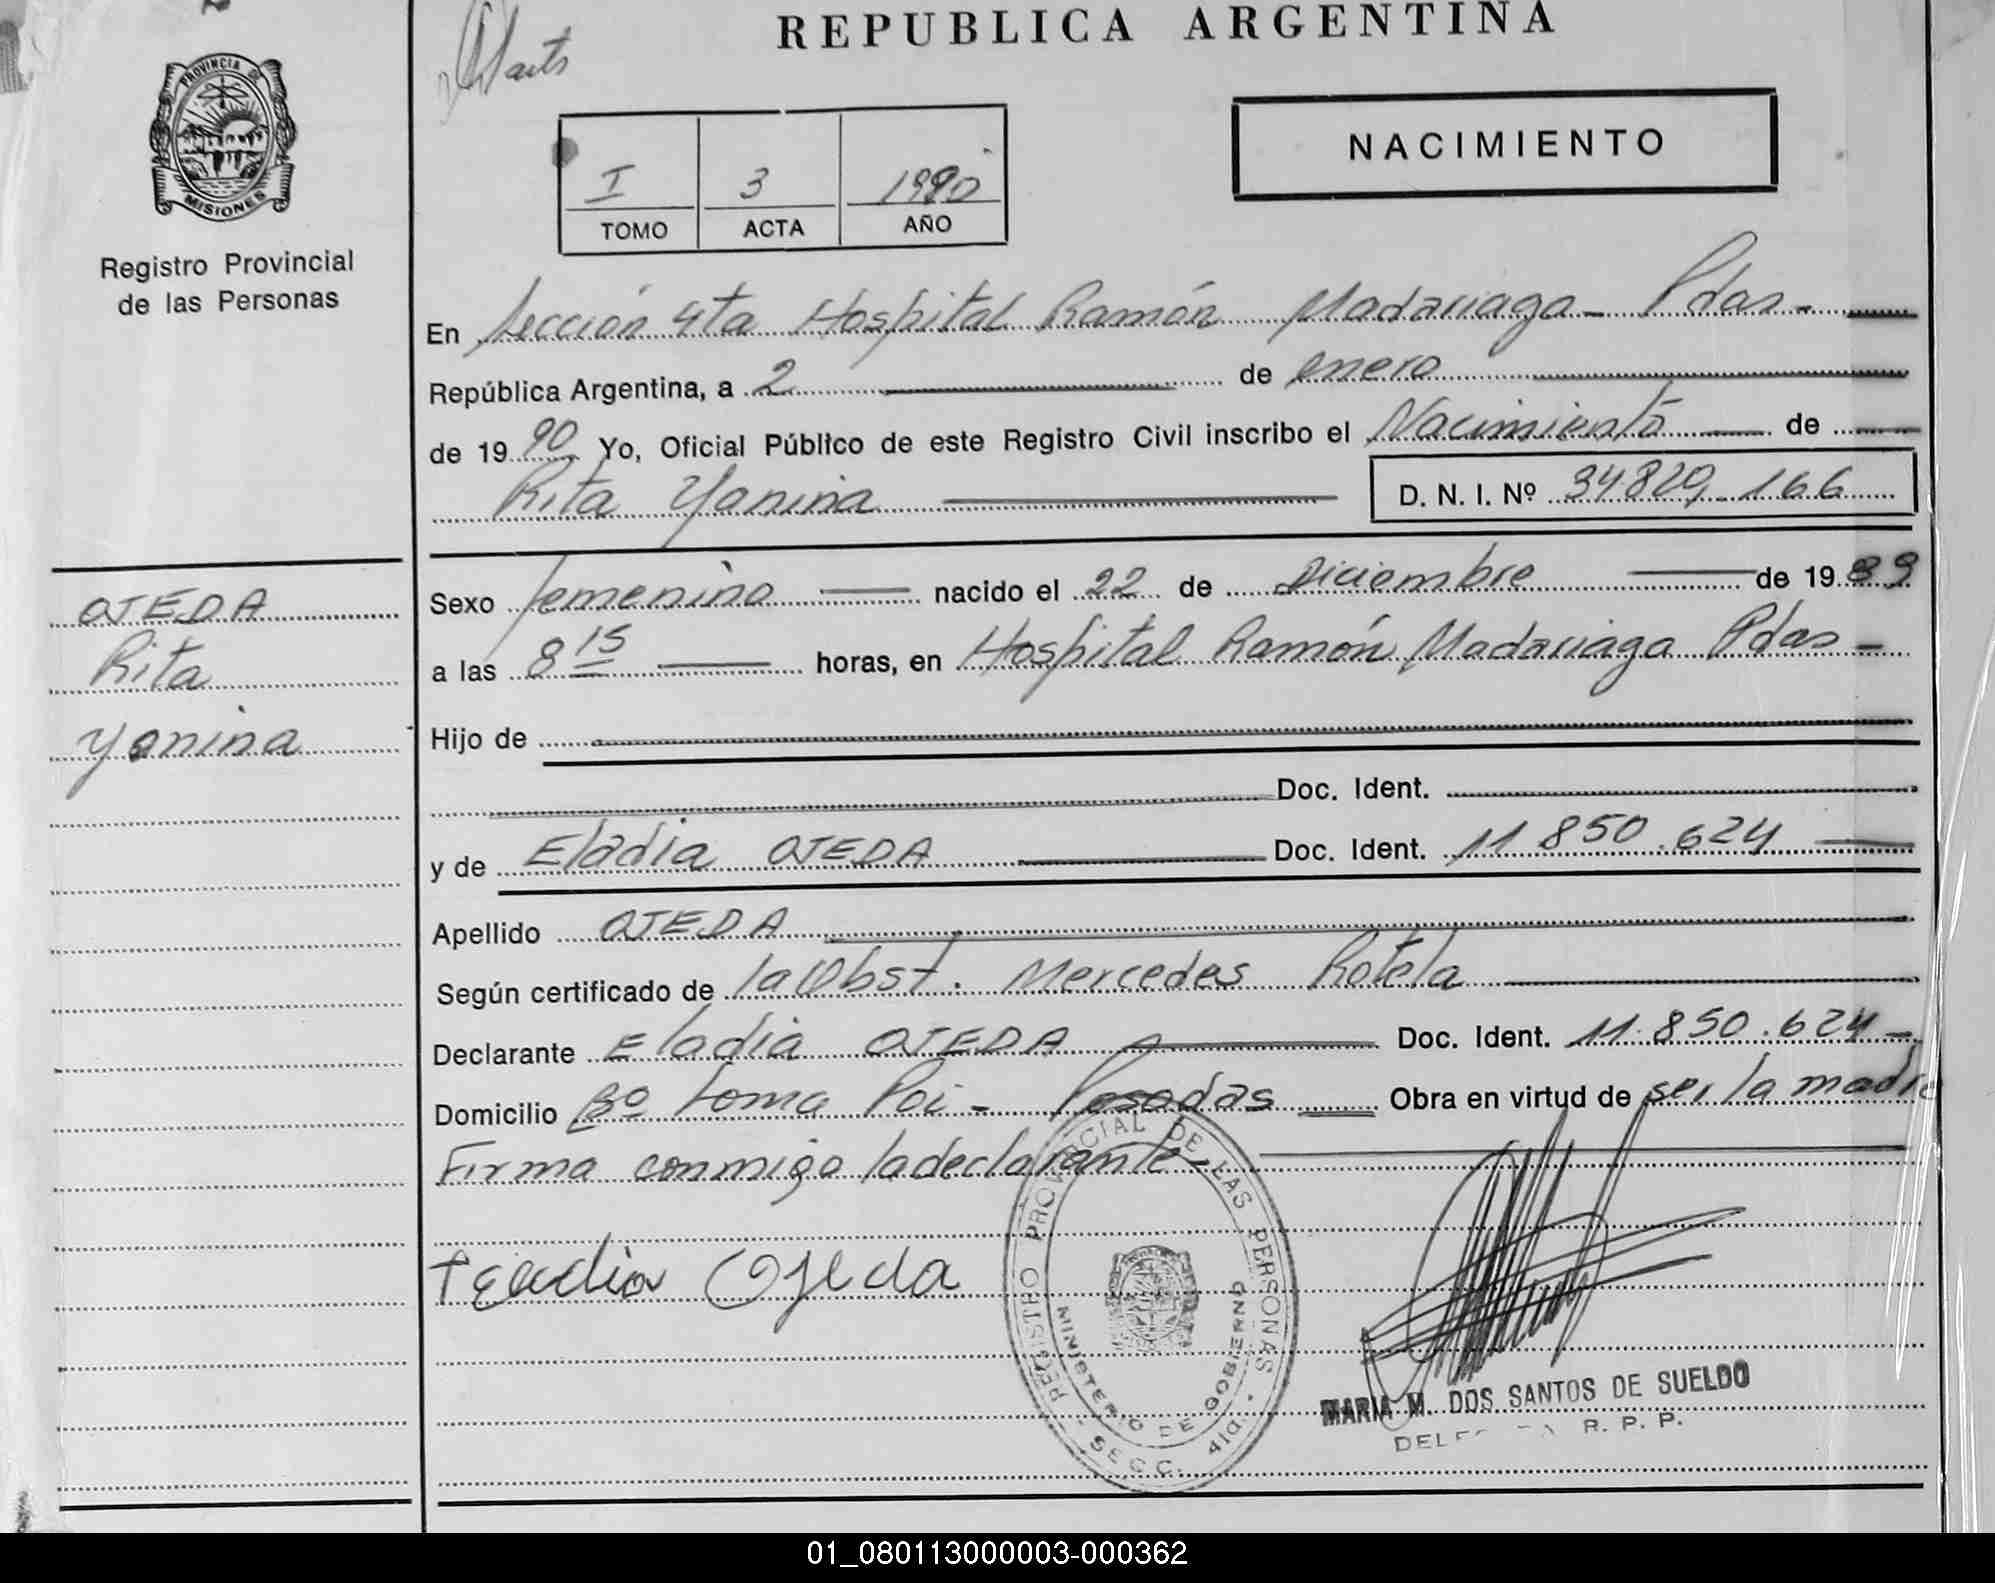 REPUBLICA ARGENTINA
PROVINCIA DE
MISIONES
Registro Provincial
de las Personas
NACIMIENTO
I 3 1990
TOMO ACTA AÑO
En Sección 4ta Hospital Ramón Madariaga - Pdas -
República Argentina, a 2 de enero
de 1990 Yo, Oficial Público de este Registro Civil inscribo el Nacimiento de
Rita Yanina D. N. I. Nº 34829.166
OJEDA
Rita
Yanina
Sexo femenino nacido el 22 de Diciembre de 1989
a las 8 15 horas, en Hospital Ramón Madariaga Pdas -
Hijo de
Doc. Ident.
y de Eladia OJEDA Doc. Ident. 11.850.624
Apellido OJEDA
Según certificado de la Obst. Mercedes Rotela
Declarante Eladia OJEDA Doc. Ident. 11.850.624 -
Domicilio Bº Loma Poi - Posadas Obra en virtud de ser la madre
Firma conmigo la declarante -
Eladia Ojeda
REGISTRO PROVINCIAL DE LAS PERSONAS
MINISTERIO DE GOBIERNO
SECC. 4ta.
MARIA M. DOS SANTOS DE SUELDO
R. P. P.
01_080113000003-000362